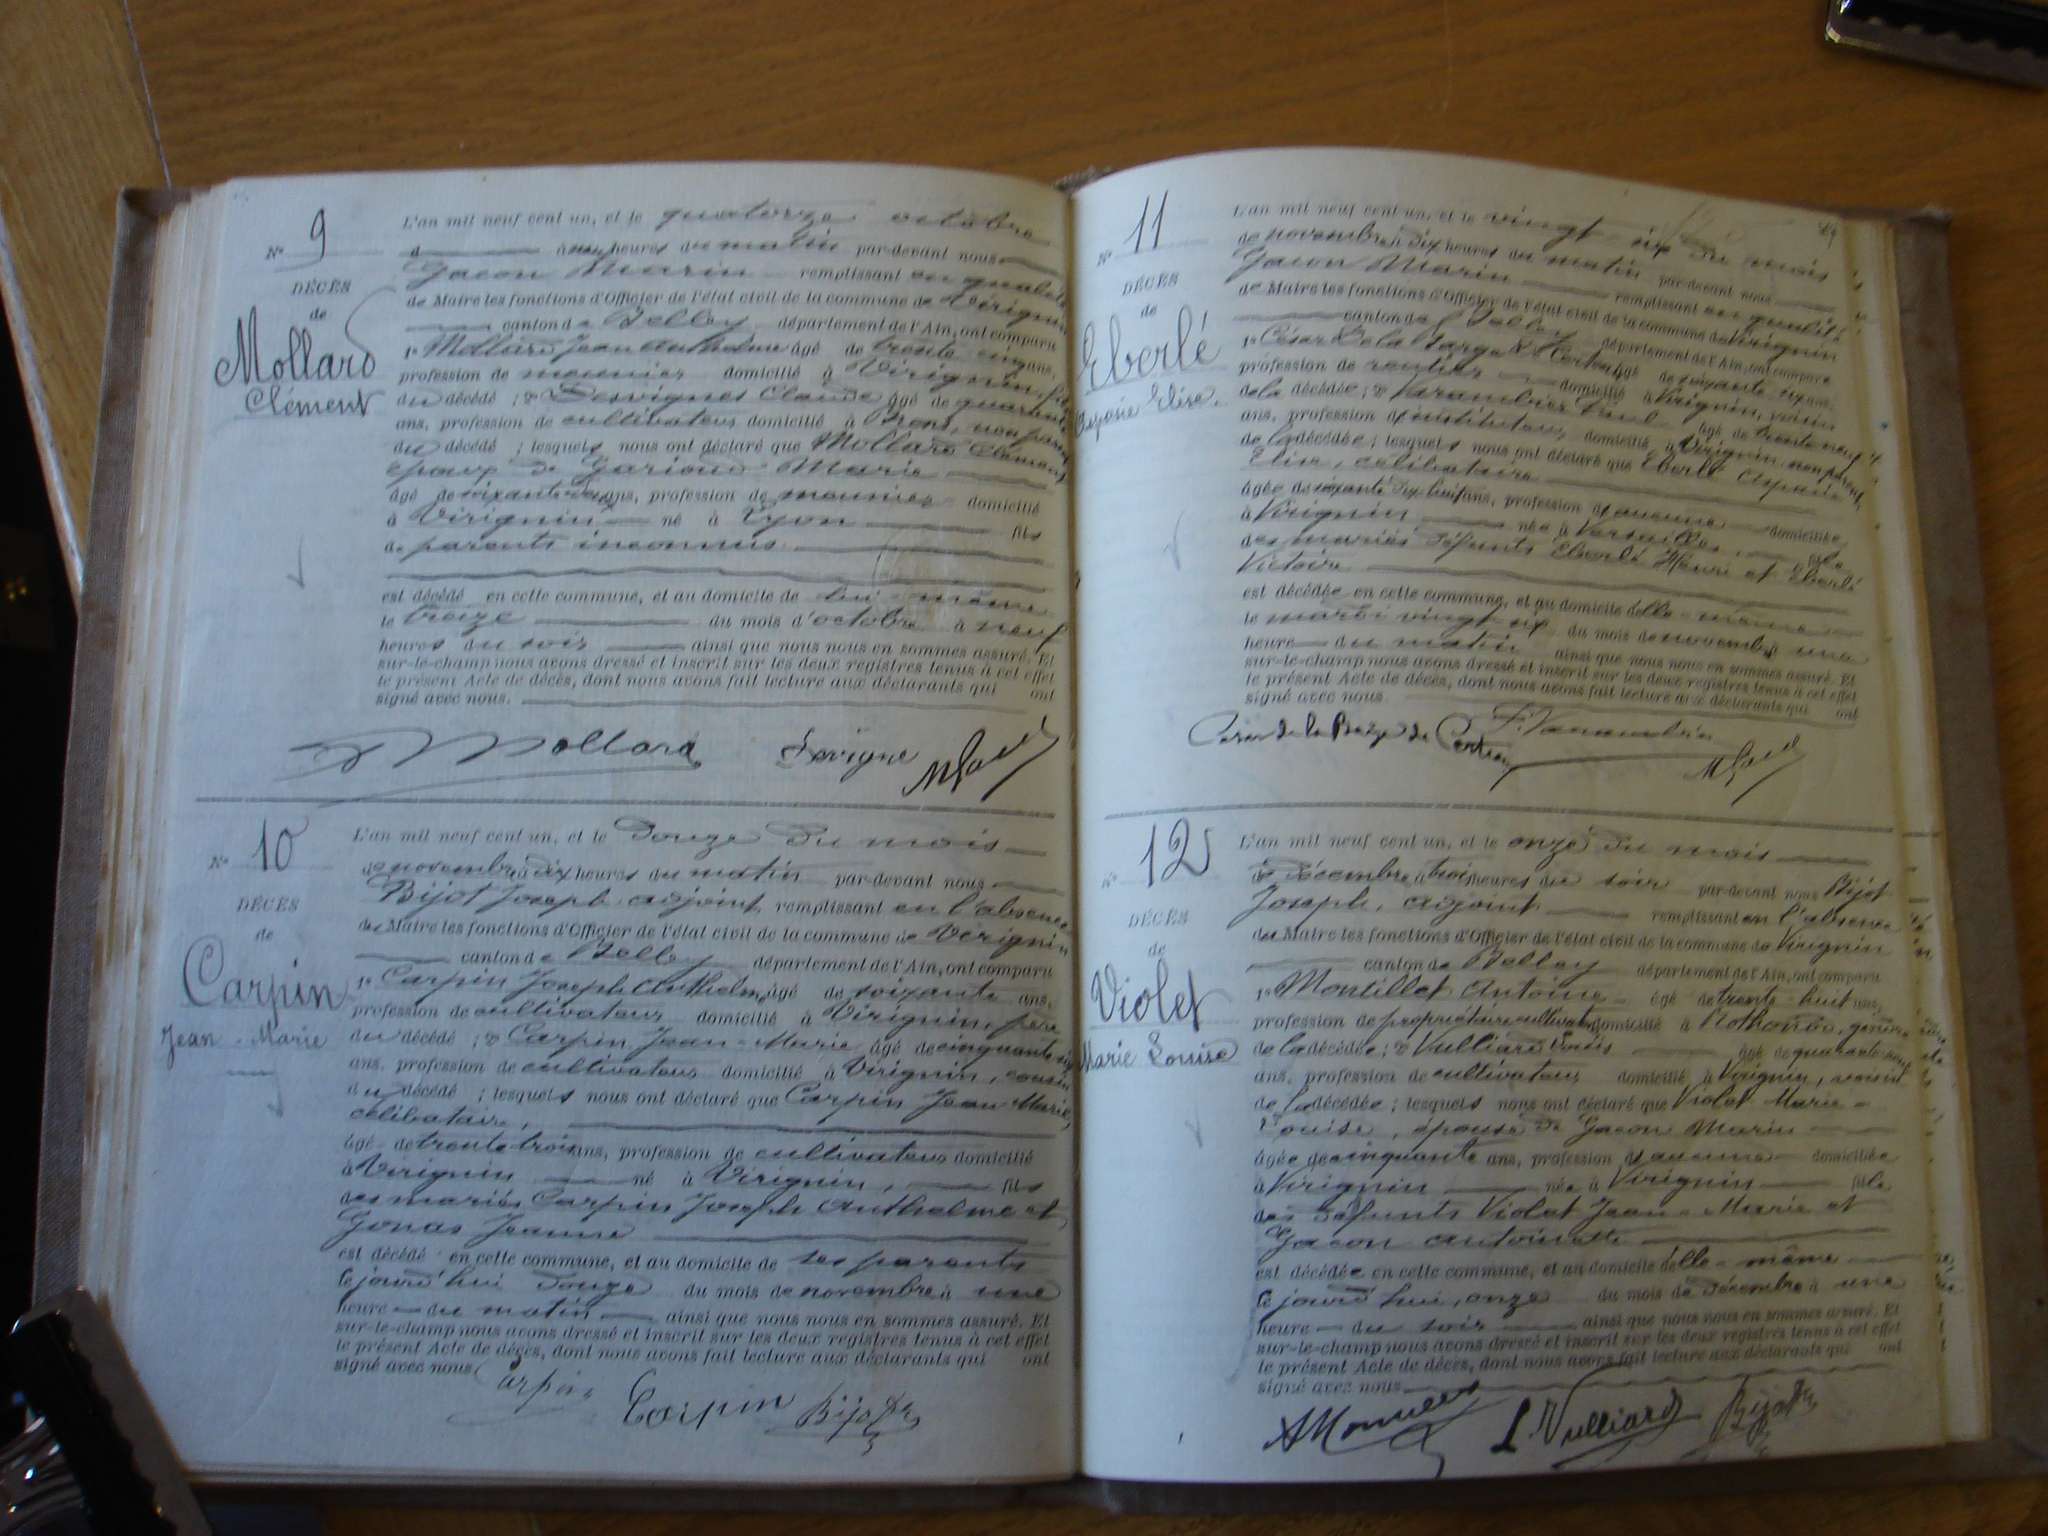 9
N°
DÉCÈS
de
Mollard
Clément
L'an mil neuf cent un, et le quatorze octobre
à heures du matin par-devant nous
Gacon Marin remplissant en qualité
de Maire les fonctions d'Officier de l'état civil de la commune de Virignin
canton de Belley département de l'Ain, ont comparu
1° Mollard Jean Anthelme âgé de trente cinq ans,
profession de meunier domicilié à Virignin, fils
du décédé ; 2° Desvignes Claude âgé de quarante
ans, profession de cultivateur domicilié à Brens, non parent
du décédé ; lesquels nous ont déclaré que Mollard Clément
époux de Marie
âgé de soixante ans, profession de meunier domicilié
à Virignin né à Lyon fils
de parents inconnus
est décédé en cette commune, et au domicile de lui-même
le treize du mois d'octobre à neuf
heures du soir ainsi que nous nous en sommes assuré. Et
sur-le-champ nous avons dressé et inscrit sur les deux registres tenus à cet effet
le présent Acte de décès, dont nous avons fait lecture aux déclarants qui ont
signé avec nous.
Mollard
10
N°
DÉCÈS
de
Carpin
Jean-Marie
L'an mil neuf cent un, et le douze du mois
de novembre à dix heures du matin par-devant nous
Bijot Joseph adjoint remplissant en l'absence
du Maire les fonctions d'Officier de l'état civil de la commune de Virignin
canton de Belley département de l'Ain, ont comparu
1° Carpin Joseph Anthelme, âgé de soixante ans,
profession de cultivateur domicilié à Virignin, père
du décédé ; 2° Carpin Jean-Marie âgé de cinquante six
ans, profession de cultivateur domicilié à Virignin, cousin
du décédé ; lesquels nous ont déclaré que Carpin Jean-Marie,
célibataire,
âgé de trente trois ans, profession de cultivateur domicilié
à Virignin né à Virignin, fils
des mariés Carpin Joseph Anthelme et
Gonas Jeanne
est décédé en cette commune, et au domicile de ses parents
le jourd'hui douze du mois de novembre à une
heure du matin ainsi que nous nous en sommes assuré. Et
sur-le-champ nous avons dressé et inscrit sur les deux registres tenus à cet effet
le présent Acte de décès, dont nous avons fait lecture aux déclarants qui ont
signé avec nous
Carpin Carpin Bijot
11
N°
DÉCÈS
de
Eberlé
Elise
L'an mil neuf cent un, et le vingt six du mois
de novembre à dix heures du matin par-devant nous
Gacon Marin remplissant en qualité
de Maire les fonctions d'Officier de l'état civil de la commune de Virignin
canton de Belley département de l'Ain, ont comparu
1° César âgé de soixante ans,
profession de rentier domicilié à Virignin, voisin
de la décédée ; 2° Varambier âgé de trente neuf
ans, profession d'instituteur, domicilié à Virignin, non parent
de la décédée ; lesquels nous ont déclaré que Eberlé
Elise, célibataire
âgée de soixante dix huit ans, profession d'aucune domiciliée
à Virignin née à Versailles, fille
des mariés défunts Eberlé Henri et Eberlé
Victoire
est décédée en cette commune, et au domicile d'elle-même
le mardi vingt six du mois de novembre à une
heure du matin ainsi que nous nous en sommes assuré. Et
sur-le-champ nous avons dressé et inscrit sur les deux registres tenus à cet effet
le présent Acte de décès, dont nous avons fait lecture aux déclarants qui ont
signé avec nous.
12
N°
DÉCÈS
de
Violet
Marie Louise
L'an mil neuf cent un, et le onze du mois
de Décembre à trois heures du soir par-devant nous Bijot
Joseph, adjoint remplissant en l'absence
du Maire les fonctions d'Officier de l'état civil de la commune de Virignin
canton de Belley département de l'Ain, ont comparu
1° Montillet Antoine âgé de trente-huit ans,
profession de propriétaire cultivateur domicilié à Nothonin, gendre
de la décédée ; 2° Vulliard Louis âgé de quarante-neuf
ans, profession de cultivateur domicilié à Virignin, voisin
de la décédée ; lesquels nous ont déclaré que Violet Marie-
Louise, épouse de Gacon Marin
âgée de cinquante ans, profession d'aucune domiciliée
à Virignin née à Virignin fille
des défunts Violet Jean-Marie et
Gacon Antoinette
est décédée en cette commune, et au domicile d'elle-même
le jourd'hui, onze du mois de Décembre à une
heure du soir ainsi que nous nous en sommes assuré. Et
sur-le-champ nous avons dressé et inscrit sur les deux registres tenus à cet effet
le présent Acte de décès, dont nous avons fait lecture aux déclarants qui ont
signé avec nous
L. Vulliard Bijot